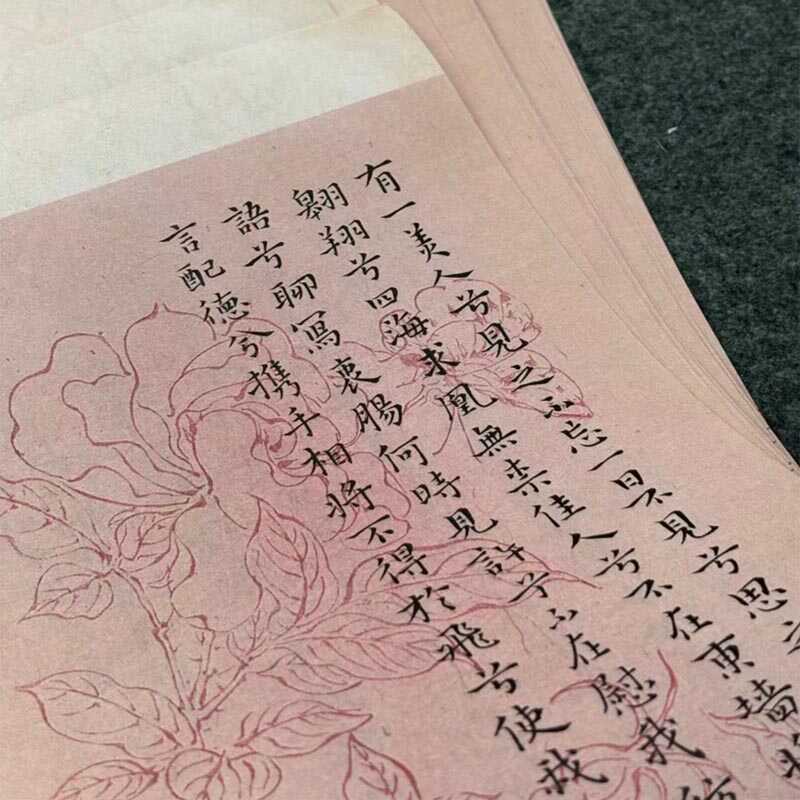 有一美人兮見之不忘一日不見兮思之
翱翔兮四海求凰無柰佳人兮不在東墻
語兮聊寫衷腸何時見許兮以在慰我
言配德兮携手相將不得於飛兮使我